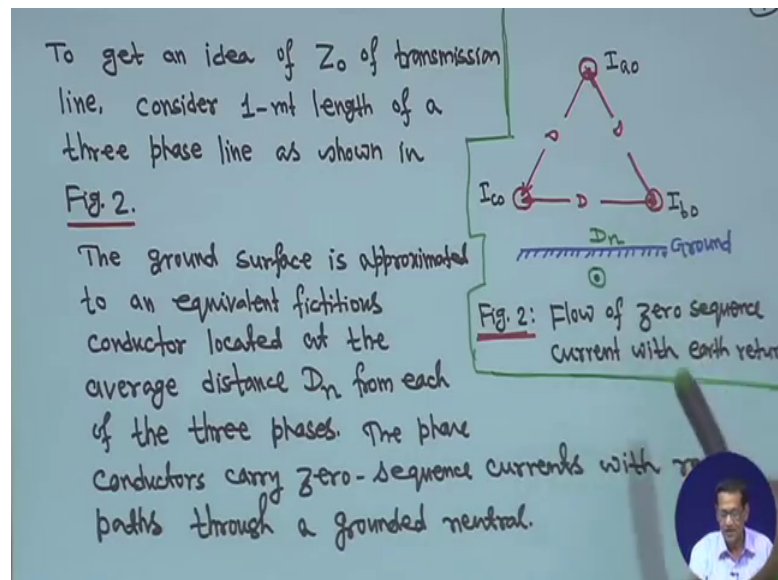 To get an idea of Z0 of transmission
line, consider 1-mt length of a
three phase line as shown in
Fig. 2.
The ground surface is approximated
to an equivalent fictitious
conductor located at the
average distance Dn from each
of the three phases. The phase
conductors carry zero-sequence currents with
paths through a grounded neutral.
Ia0
D D
Ic0 D Ib0
Dn
Ground
Fig. 2: Flow of zero sequence
current with earth return